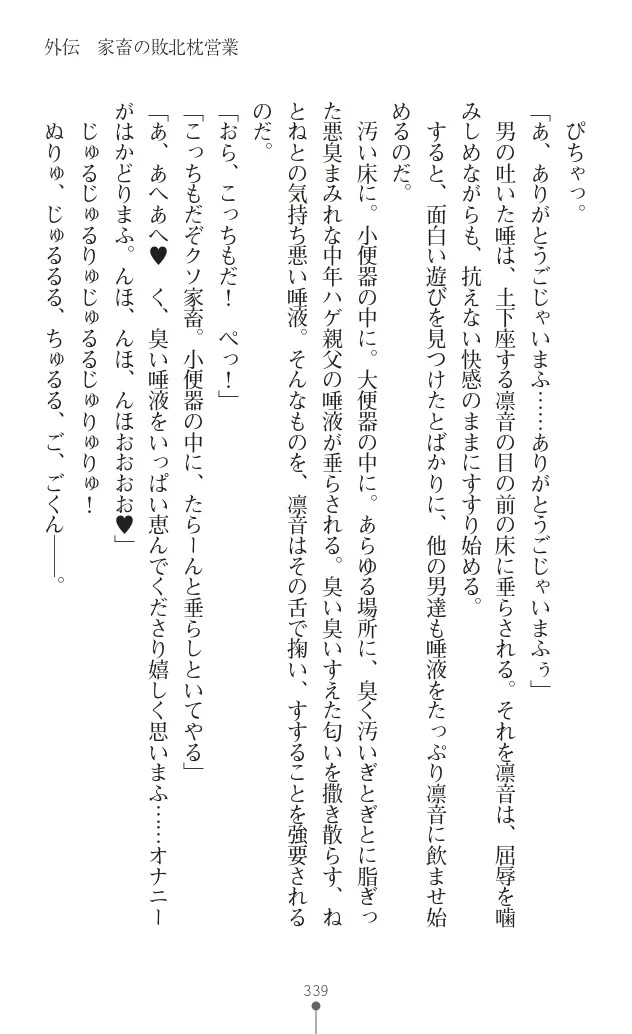 外伝　家畜の敗北枕営業
ぴちゃっ。
「あ、ありがとうごじゃいまふ……ありがとうごじゃいまふぅ」
男の吐いた唾は、土下座する凛音の目の前の床に垂らされる。それを凛音は、屈辱を噛
みしめながらも、抗えない快感のままにすすり始める。
すると、面白い遊びを見つけたとばかりに、他の男達も唾液をたっぷり凛音に飲ませ始
めるのだ。
汚い床に。小便器の中に。大便器の中に。あらゆる場所に、臭く汚いぎとぎとに脂ぎっ
た悪臭まみれな中年ハゲ親父の唾液が垂らされる。臭い臭いすえた匂いを撒き散らす、ね
とねとの気持ち悪い唾液。そんなものを、凛音はその舌で掬い、すすることを強要される
のだ。
「おら、こっちもだ！　ぺっ！」
「こっちもだぞクソ家畜。小便器の中に、たらーんと垂らしといてやる」
「あ、あへあへ♥　く、臭い唾液をいっぱい恵んでくださり嬉しく思いまふ……オナニー
がはかどりまふ。んほ、んほ、んほおおおお♥」
じゅるじゅるりゅじゅるるじゅりゅりゅ！
ぬりゅ、じゅるるる、ちゅるる、ご、ごくん――。
339